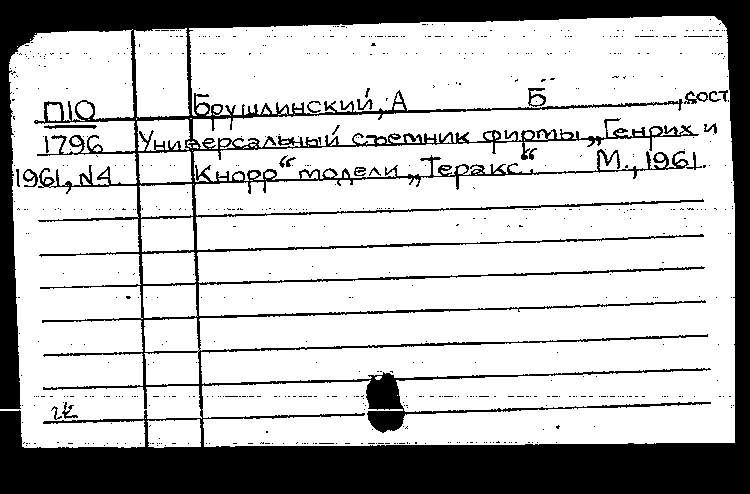 П10 Брушлинский, А Б , сост.
1796 Универсальный съемник фирмы „Генрих и
1961, N4. Кнорр“ модели „Теракс“. М., 1961.